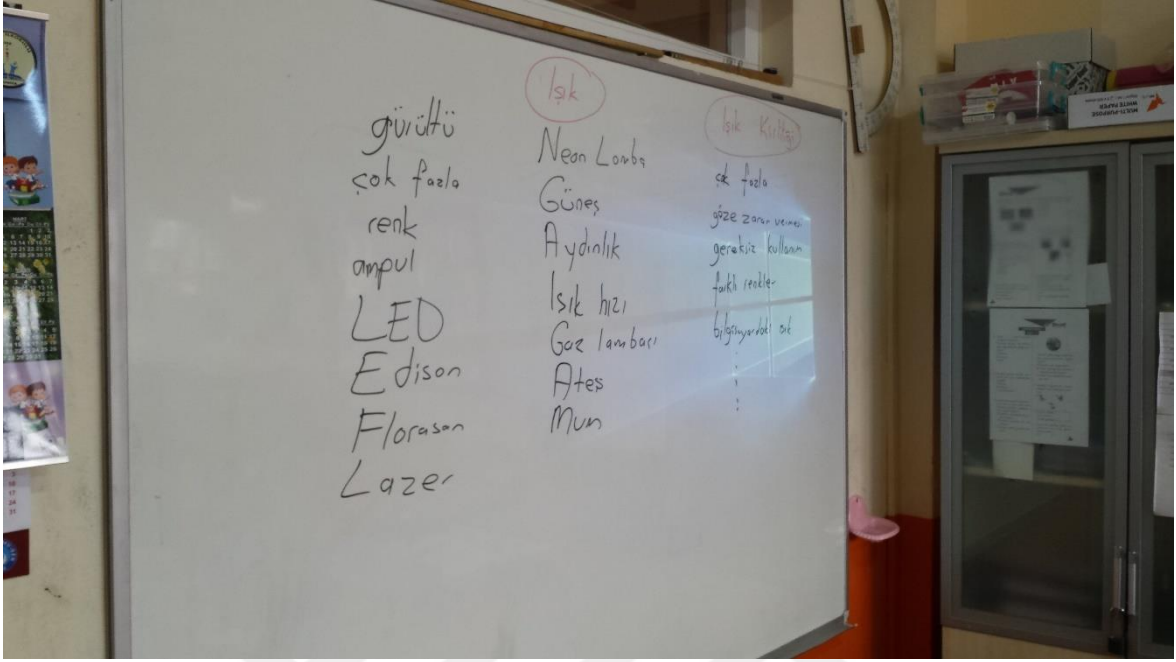 Işık
gürültü
çok fazla
renk
ampul
LED
Edison
Florasan
Lazer
Neon Lamba
Güneş
Aydınlık
Işık hızı
Gaz lambası
Ateş
Mum
Işık Kirliliği
çok fazla
göze zarar vermesi
gereksiz kullanım
farklı renkler
bilgisayardaki
MULTI-PURPOSE
WHITE PAPER
MART